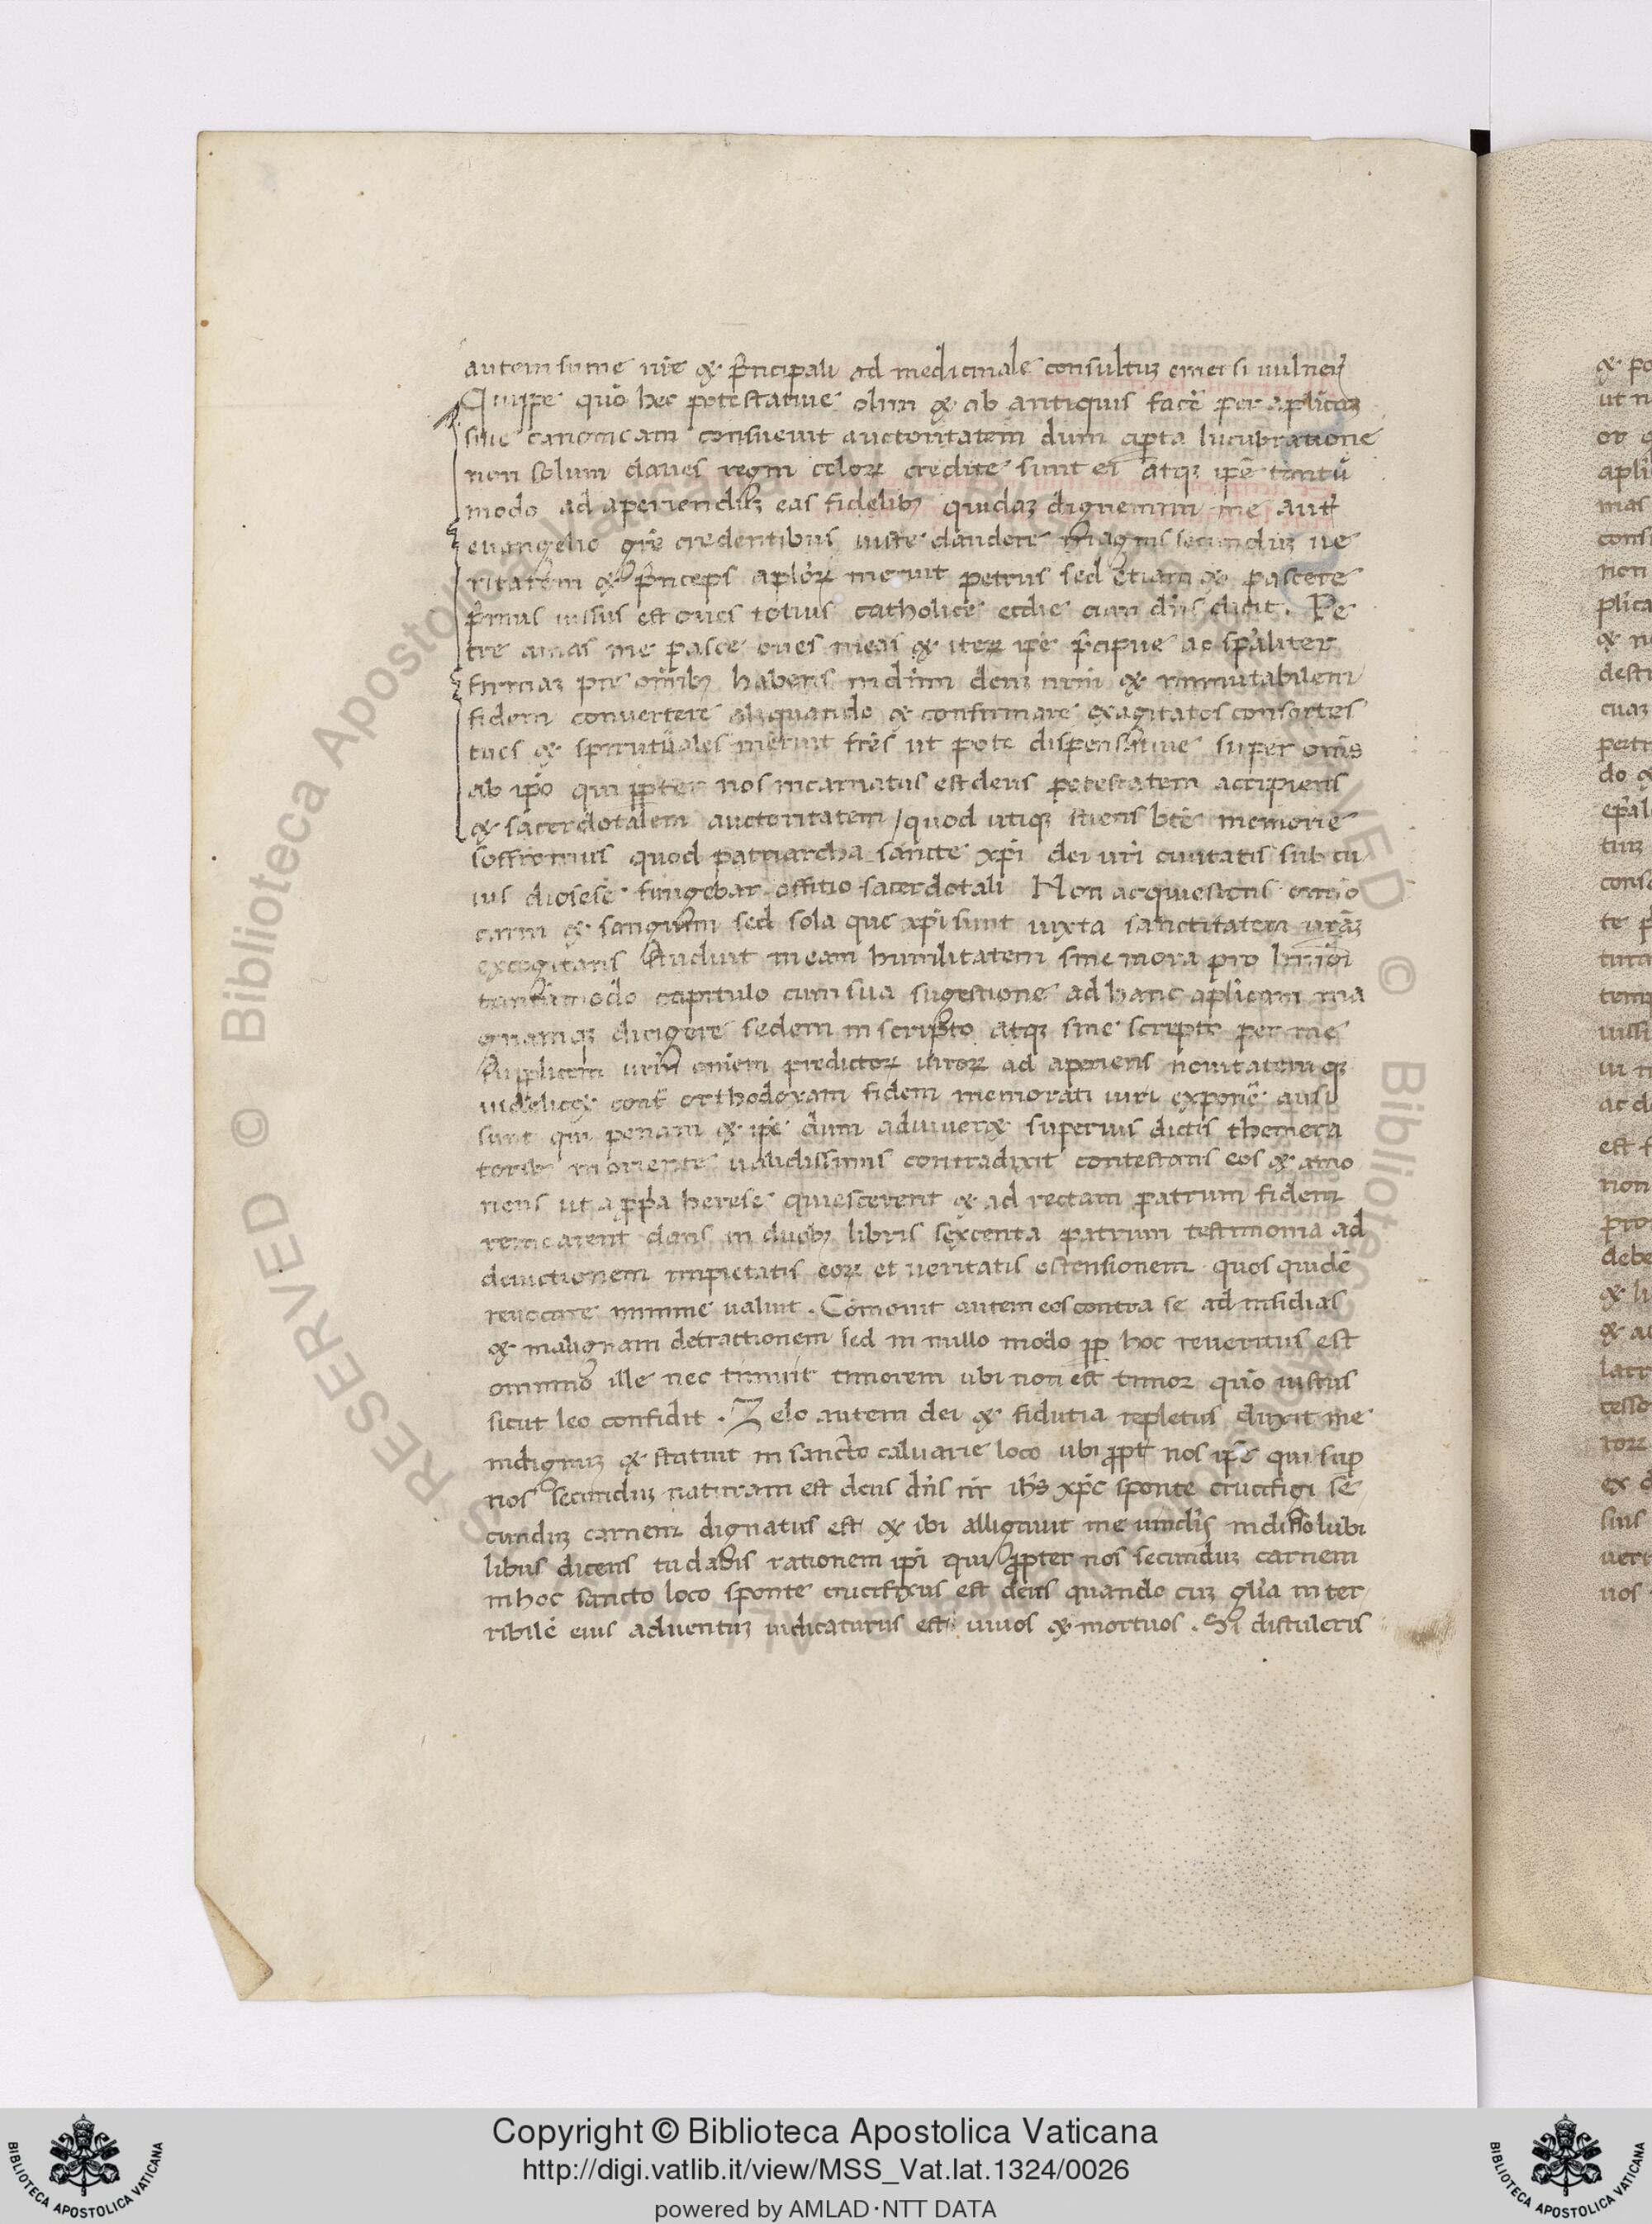 autem sume nr̄e & p̄ncipali ad medicinale consultuꝫ emersi uulneri
Quippe quō hec potestatiue olim & ab antiquis facē per aplicaꝫ
siue canonicam consueuit auctoritatem dum aperta lucubratione
non solum claues regni celoꝝ credite sunt ei atqꝫ ip̄e tantū
modo ad aperienduꝫ eas fidelibꝫ quidaꝫ dignemini me autē
euangelio gr̄e credentibus iuste claudere magnus secunduꝫ ue
ritatem & p̄nceps aploꝝ meruit petrus sed etiam & pascere
p̄mus iussus est oues totius catholice eccl̄ie cum dn̄s dicit. Pe
tre amas me pasce oues meas & iteꝝ ip̄e p̄cipue ac sp̄aliter
firmaꝫ pre om̄ibꝫ habens in dn̄m deuꝫ nr̄m & inmutabilem
fidem conuertere aliquando & confirmare exagitatos consortes
tuos & spirituales meruit fr̄es ut pote dispensatiue super om̄s
ab ip̄o qui ꝓpter nos incarnatus est deus potestatem accipiens
& sacerdotalem auctoritatem / quod utiqꝫ sciens bte memorie
soffronius quod patriarcha sancte xp̄i dei nr̄i ciuitatis sub cu
ius diosese fungebar offitio sacerdotali Non acquiescens omnino
carni & sanguini sed sola que xp̄i sunt iuxta sanctitatem ur̄aꝫ
excogitans studuit meam humilitatem sine mora pro
tantūmodo capitulo cum sua sugestione ad hanc aplicam ma
gnamqꝫ dirigere sedem in scripto atqꝫ sine scripto per me
supplicem urm̄ omem predictoꝝ uiroꝝ ad aperiens nouitatemqꝫ
uidelicet cont̄ orthodoxam fidem memorati uiri exponē ausi
sunt qui penam & ip̄e dum aduiueret superius dictis themera
toribꝫ in oriente ualidissimis contradixit contestans eos & amo
nens ut a p̄pa herese quiescerent & ad rectam patrum fidem
remearent dans in duobꝫ libris sexcenta patrum testimonia ad
deuictionem impietatis eoꝝ et ueritatis ostensionem quos quidē
reuocare minime ualuit . Comouit autem eos contra se ad insidias
& malignam detractionem sed in nullo modo ꝓp hoc reueritus est
omnino ille nec timuit timorem ubi non est timor quō iustus
sicut leo confidit . Zelo autem dei & fidutia repletus duxit me
indignuꝫ & statuit in sancto caluarie loco ubi ꝓpt̄ nos ip̄e qui sup
nos secunduꝫ naturam est deus dn̄s nr̄ ih̄s xp̄c sponte crucifigi se
cunduꝫ carnem dignatus est & ibi alligauit me uinclis indissolubi
libus dicens tu dabis rationem ip̄i qui ꝓpter nos secunduꝫ carnem
in hoc sancto loco sponte crucifixus est deus quando cuꝫ gl̄ia in ter
ribilē eius aduentuꝫ iudicaturus est uiuos & mortuos . Si distuleris
Copyright © Biblioteca Apostolica Vaticana
http://digi.vatlib.it/view/MSS_Vat.lat.1324/0026
powered by AMLAD·NTT DATA